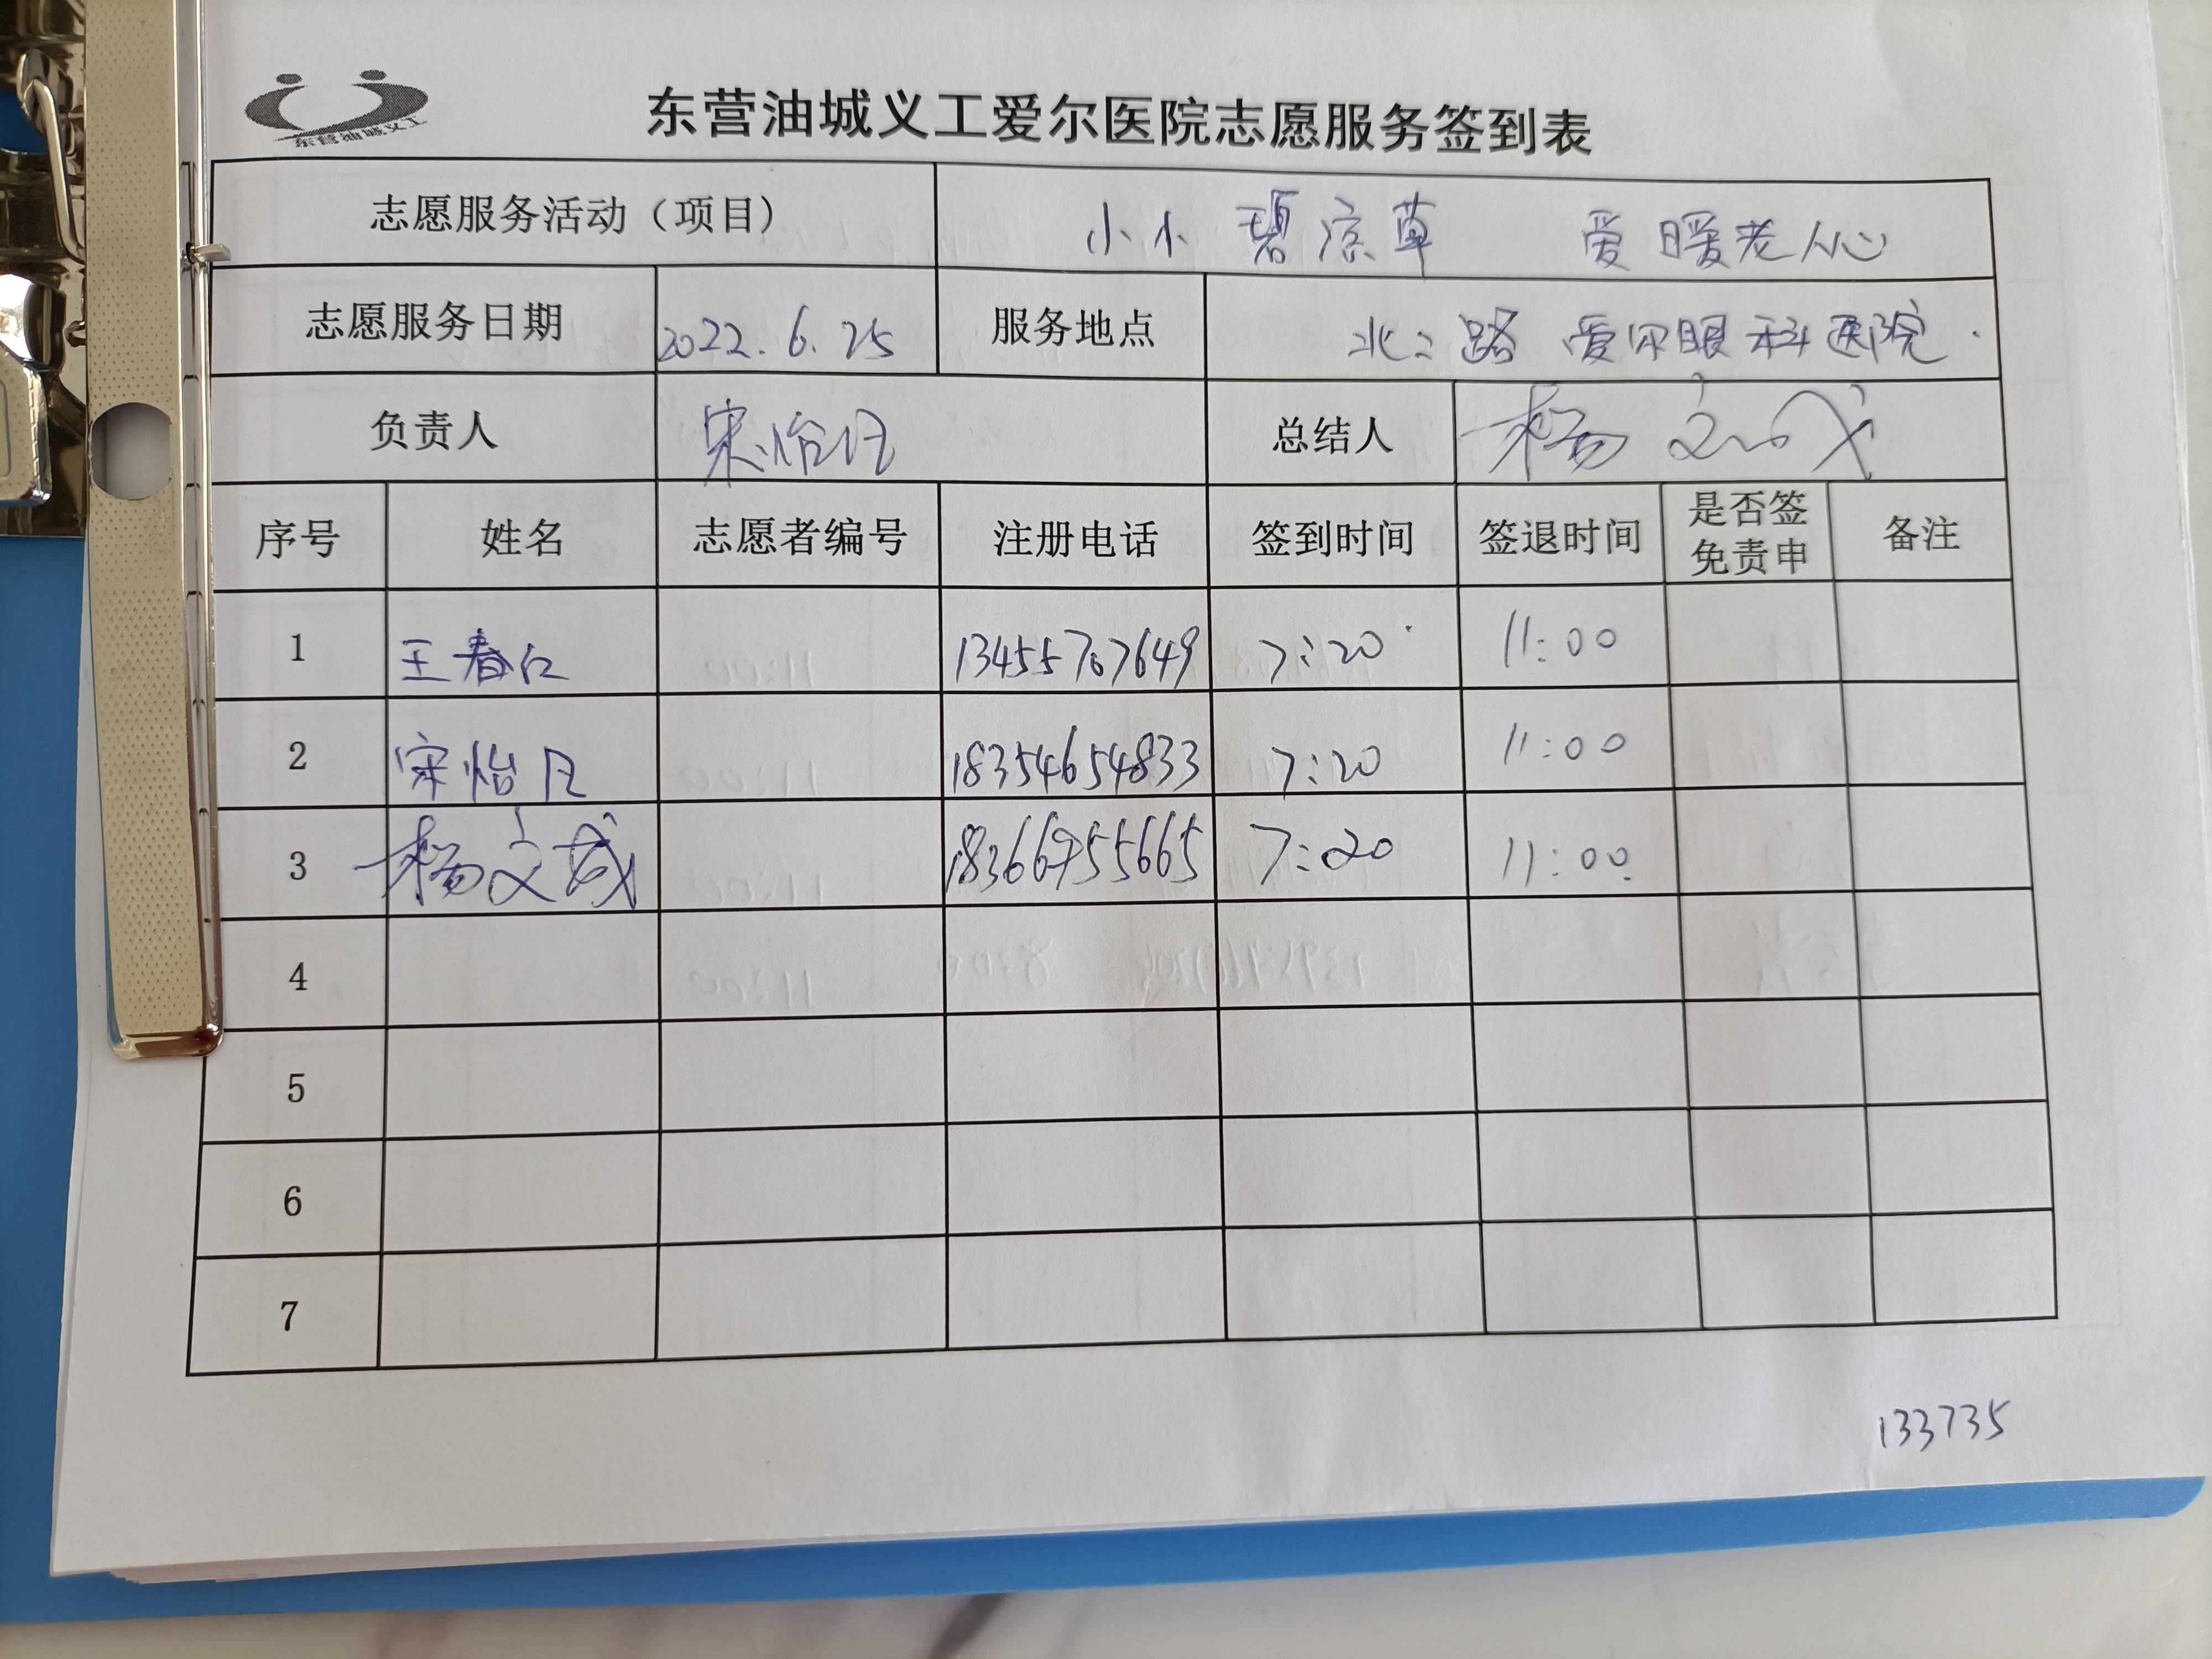 东营油城义工
东营油城义工爱尔医院志愿服务签到表
志愿服务活动（项目） 小小碧凉草 爱暖老人心
志愿服务日期 2022.6.25 服务地点 北二路 爱尔眼科医院.
负责人 宋怡 总结人 杨文
序号 姓名 志愿者编号 注册电话 签到时间 签退时间 是否签免责申 备注
1 王春仁 13455707649 7:20 11:00
2 宋怡 18354654833 7:20 11:00
3 杨文 18366955665 7:20 11:00
4
5
6
7
133735